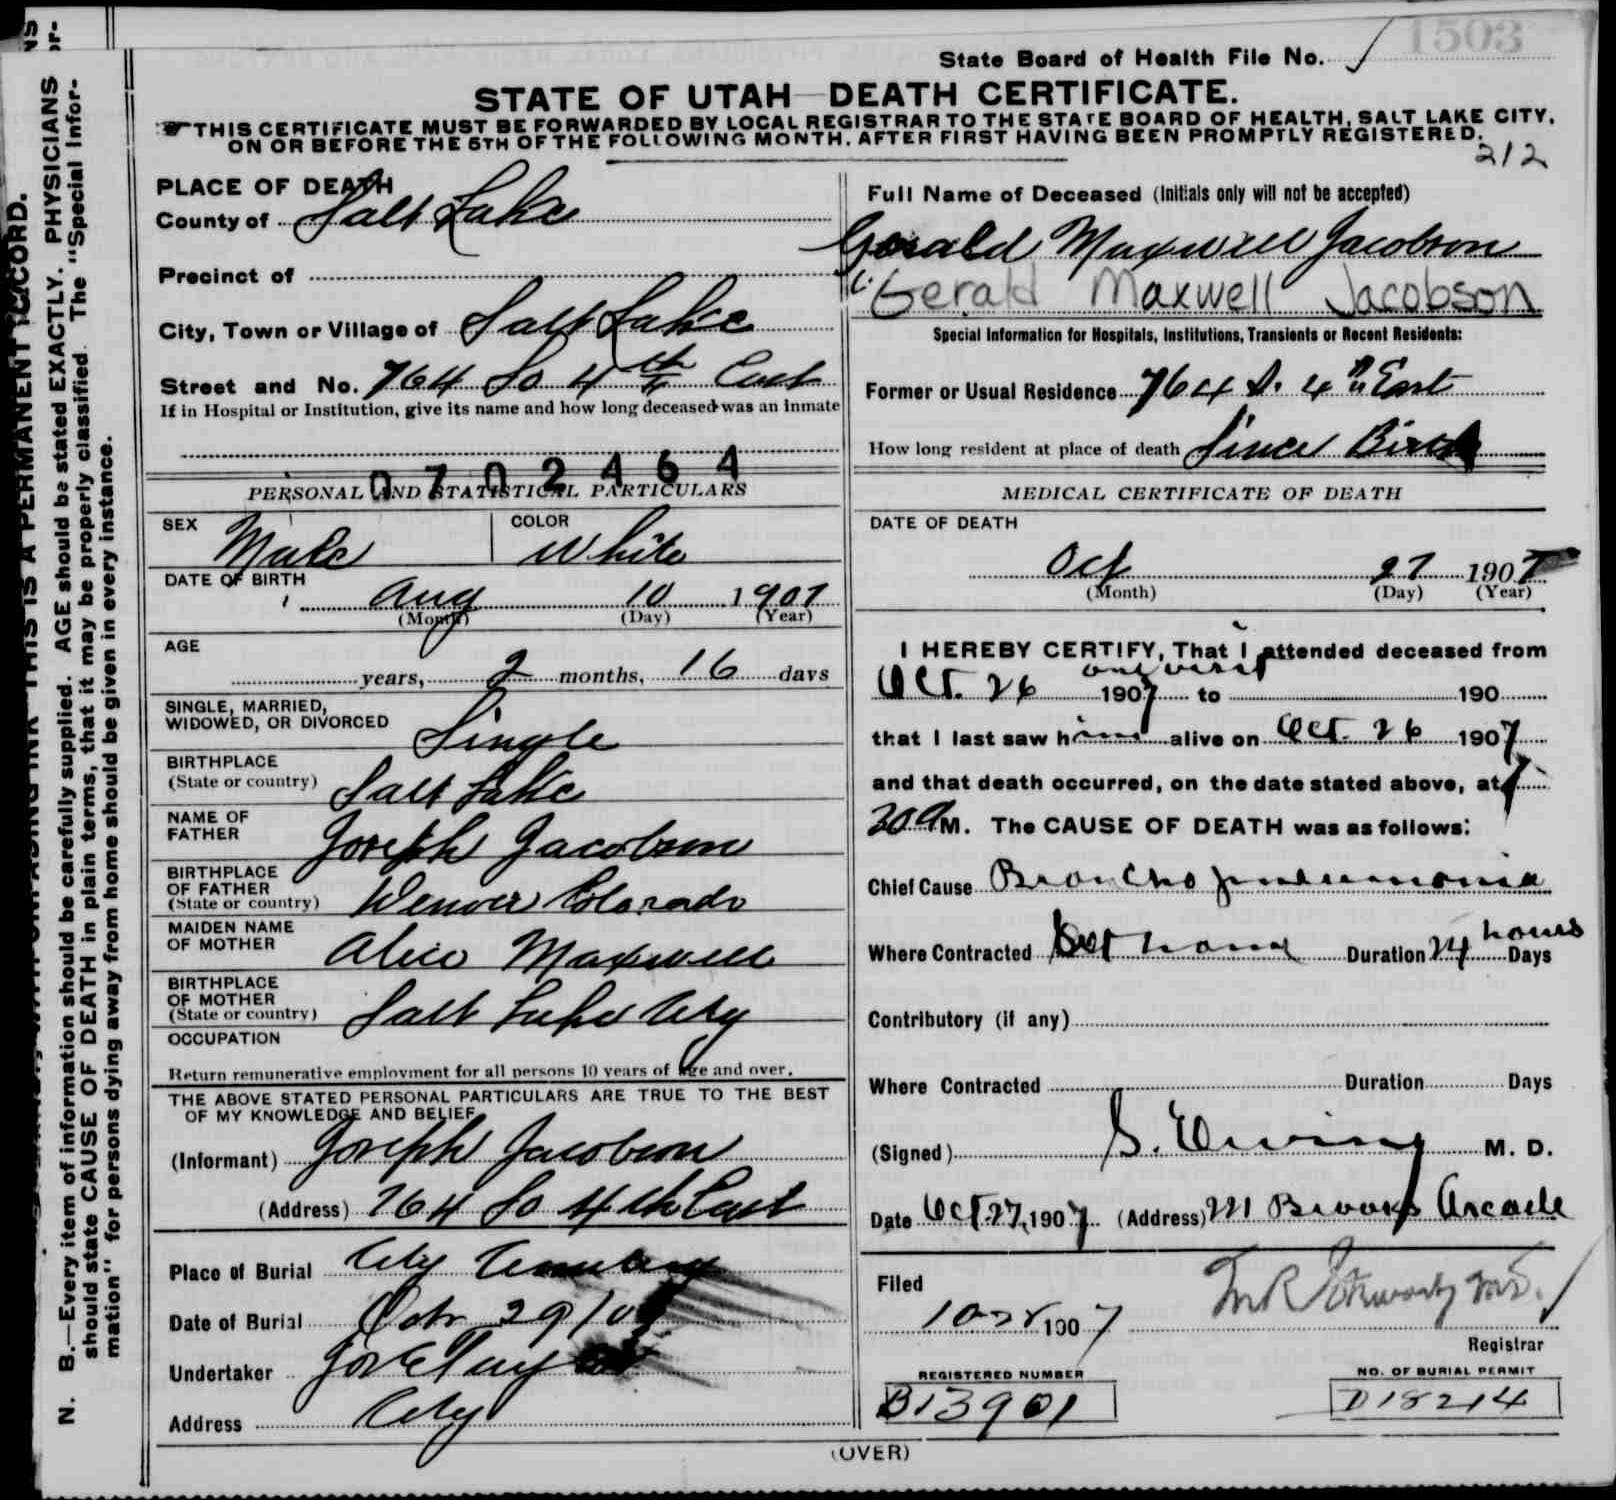 1503
State Board of Health File No.
STATE OF UTAH—DEATH CERTIFICATE.
THIS CERTIFICATE MUST BE FORWARDED BY LOCAL REGISTRAR TO THE STATE BOARD OF HEALTH, SALT LAKE CITY,
ON OR BEFORE THE 5TH OF THE FOLLOWING MONTH, AFTER FIRST HAVING BEEN PROMPTLY REGISTERED.
212
PLACE OF DEATH
County of Salt Lake
Precinct of
City, Town or Village of Salt Lake
Street and No. 764 So 4th East
If in Hospital or Institution, give its name and how long deceased was an inmate
0702464
PERSONAL AND STATISTICAL PARTICULARS
SEX Male COLOR White
DATE OF BIRTH
Aug 10 1907
(Month) (Day) (Year)
AGE
years, 2 months, 16 days
SINGLE, MARRIED,
WIDOWED, OR DIVORCED Single
BIRTHPLACE
(State or country) Salt Lake
NAME OF
FATHER Joseph Jacobson
BIRTHPLACE
OF FATHER
(State or country) Denver Colorado
MAIDEN NAME
OF MOTHER Alice Maxwell
BIRTHPLACE
OF MOTHER
(State or country) Salt Lake City
OCCUPATION
Return remunerative employment for all persons 10 years of age and over.
THE ABOVE STATED PERSONAL PARTICULARS ARE TRUE TO THE BEST
OF MY KNOWLEDGE AND BELIEF
(Informant) Joseph Jacobson
(Address) 764 So 4th East
Place of Burial City Cemetery
Date of Burial Octr 29/07
Undertaker Jos E Taylor
Address City
Full Name of Deceased (Initials only will not be accepted)
Gerald Maxwell Jacobson
Gerald Maxwell Jacobson
Special Information for Hospitals, Institutions, Transients or Recent Residents:
Former or Usual Residence 764 S. 4th East
How long resident at place of death Since Birth
MEDICAL CERTIFICATE OF DEATH
DATE OF DEATH
Oct 27 1907
(Month) (Day) (Year)
I HEREBY CERTIFY, That I attended deceased from
one visit
Oct. 26 1907 to 190
that I last saw him alive on Oct. 26 1907
and that death occurred, on the date stated above, at 1
30 a M. The CAUSE OF DEATH was as follows:
Chief Cause Broncho pneumonia
Where Contracted at home Duration 24 hours Days
Contributory (if any)
Where Contracted Duration Days
(Signed) S. Ewing M. D.
Date Oct 27, 1907 (Address) 211 Brooks Arcade
Filed
10-28 1907
Registrar
REGISTERED NUMBER
B13901
NO. OF BURIAL PERMIT
D18214
(OVER)
N. B.—Every item of information should be carefully supplied. AGE should be stated EXACTLY. PHYSICIANS
should state CAUSE OF DEATH in plain terms, that it may be properly classified. The "Special Infor-
mation" for persons dying away from home should be given in every instance.
THIS IS A PERMANENT RECORD.